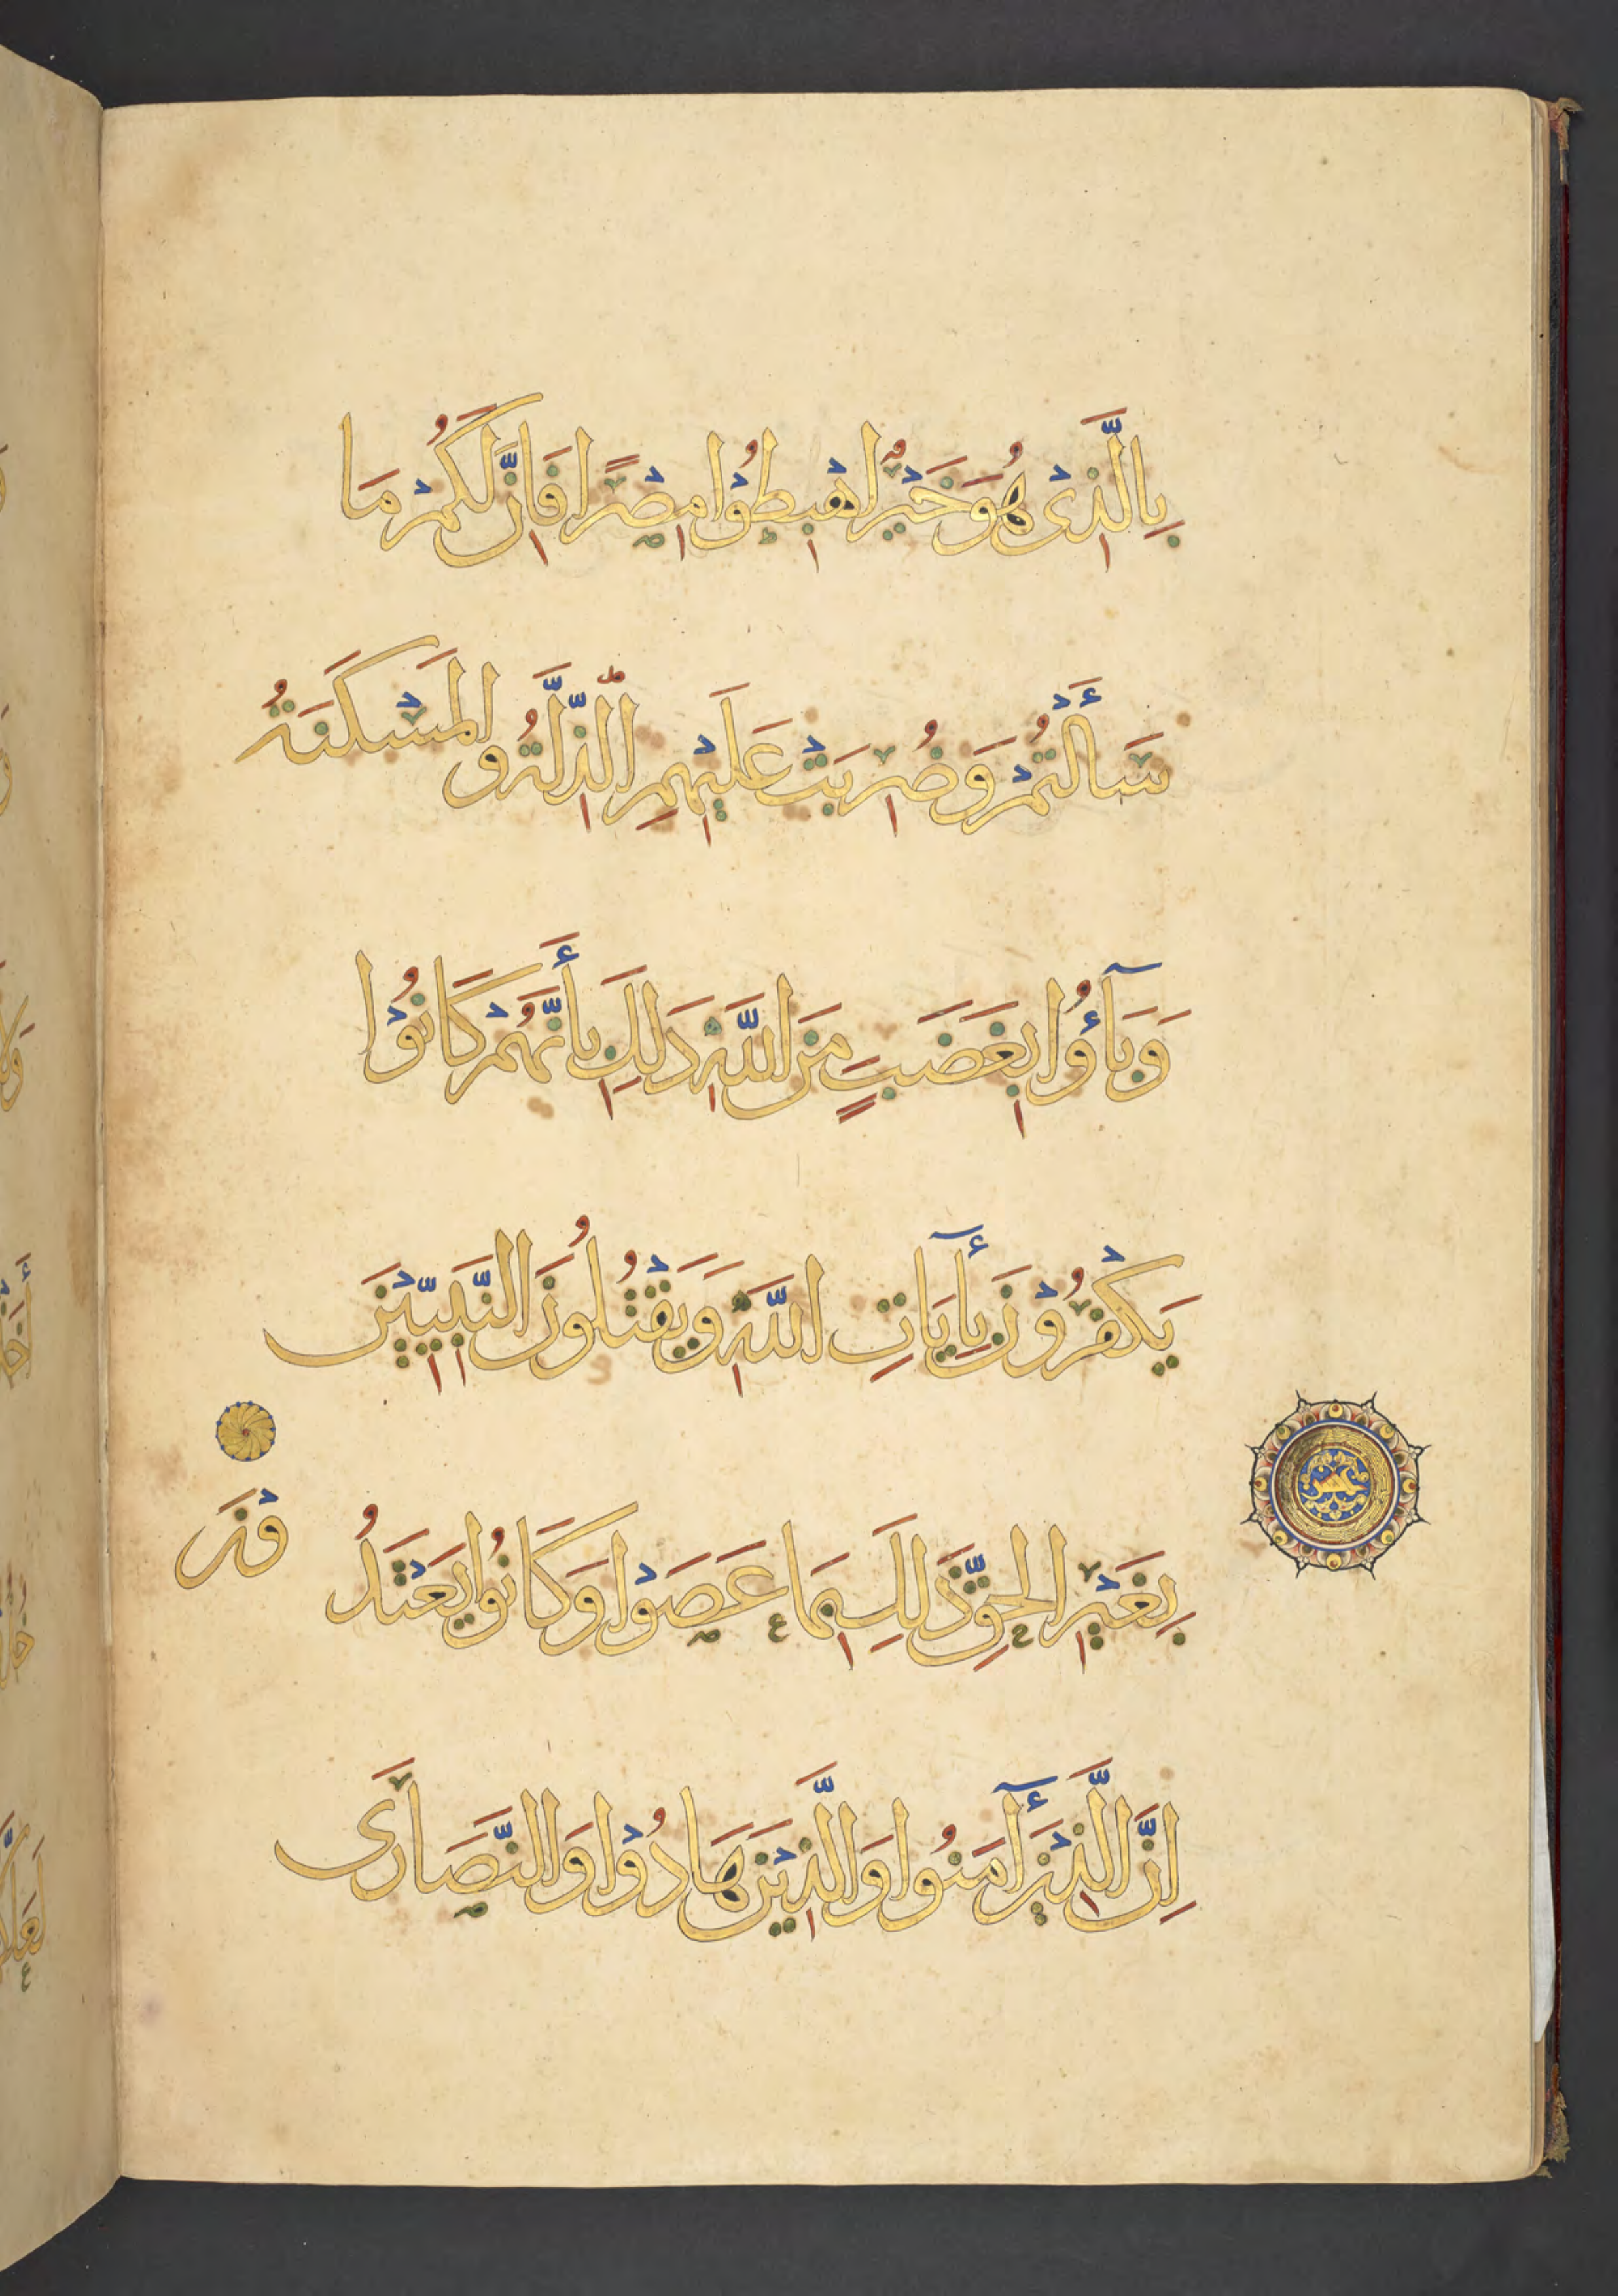 بِالَّذِىْ هُوَ خَيْرٌ اهْبِطُوْا مِصْرًا فَاِنَّ لَكُمْ مَا
سَأَلْتُمْ وَضُرِبَتْ عَلَيْهِمِ الذِّلَّةُ وَالْمَسْكَنَةُ
وَبَآؤُا بِغَضَبٍ مِنَ اللَّهِ ذَلِكَ بِأَنَّهُمْ كَانُوْا
يَكْفُرُوْنَ بِأَيَاتِ اللَّهِ وَيَقْتُلُونَ النَّبِيِّيْنَ
بِغَيْرِ الْحَقِّ ذَلِكَ بِمَا عَصَوْا وَكَانُوا يَعْتَدُ
وْنَ
اِنَّ الَّذِيْنَ أَمَنُوا وَالَّذِيْنَ هَادُوْا وَالنَّصَارَى